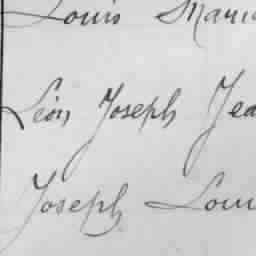 Louis Mari
Léon Joseph Jea
Joseph Loui